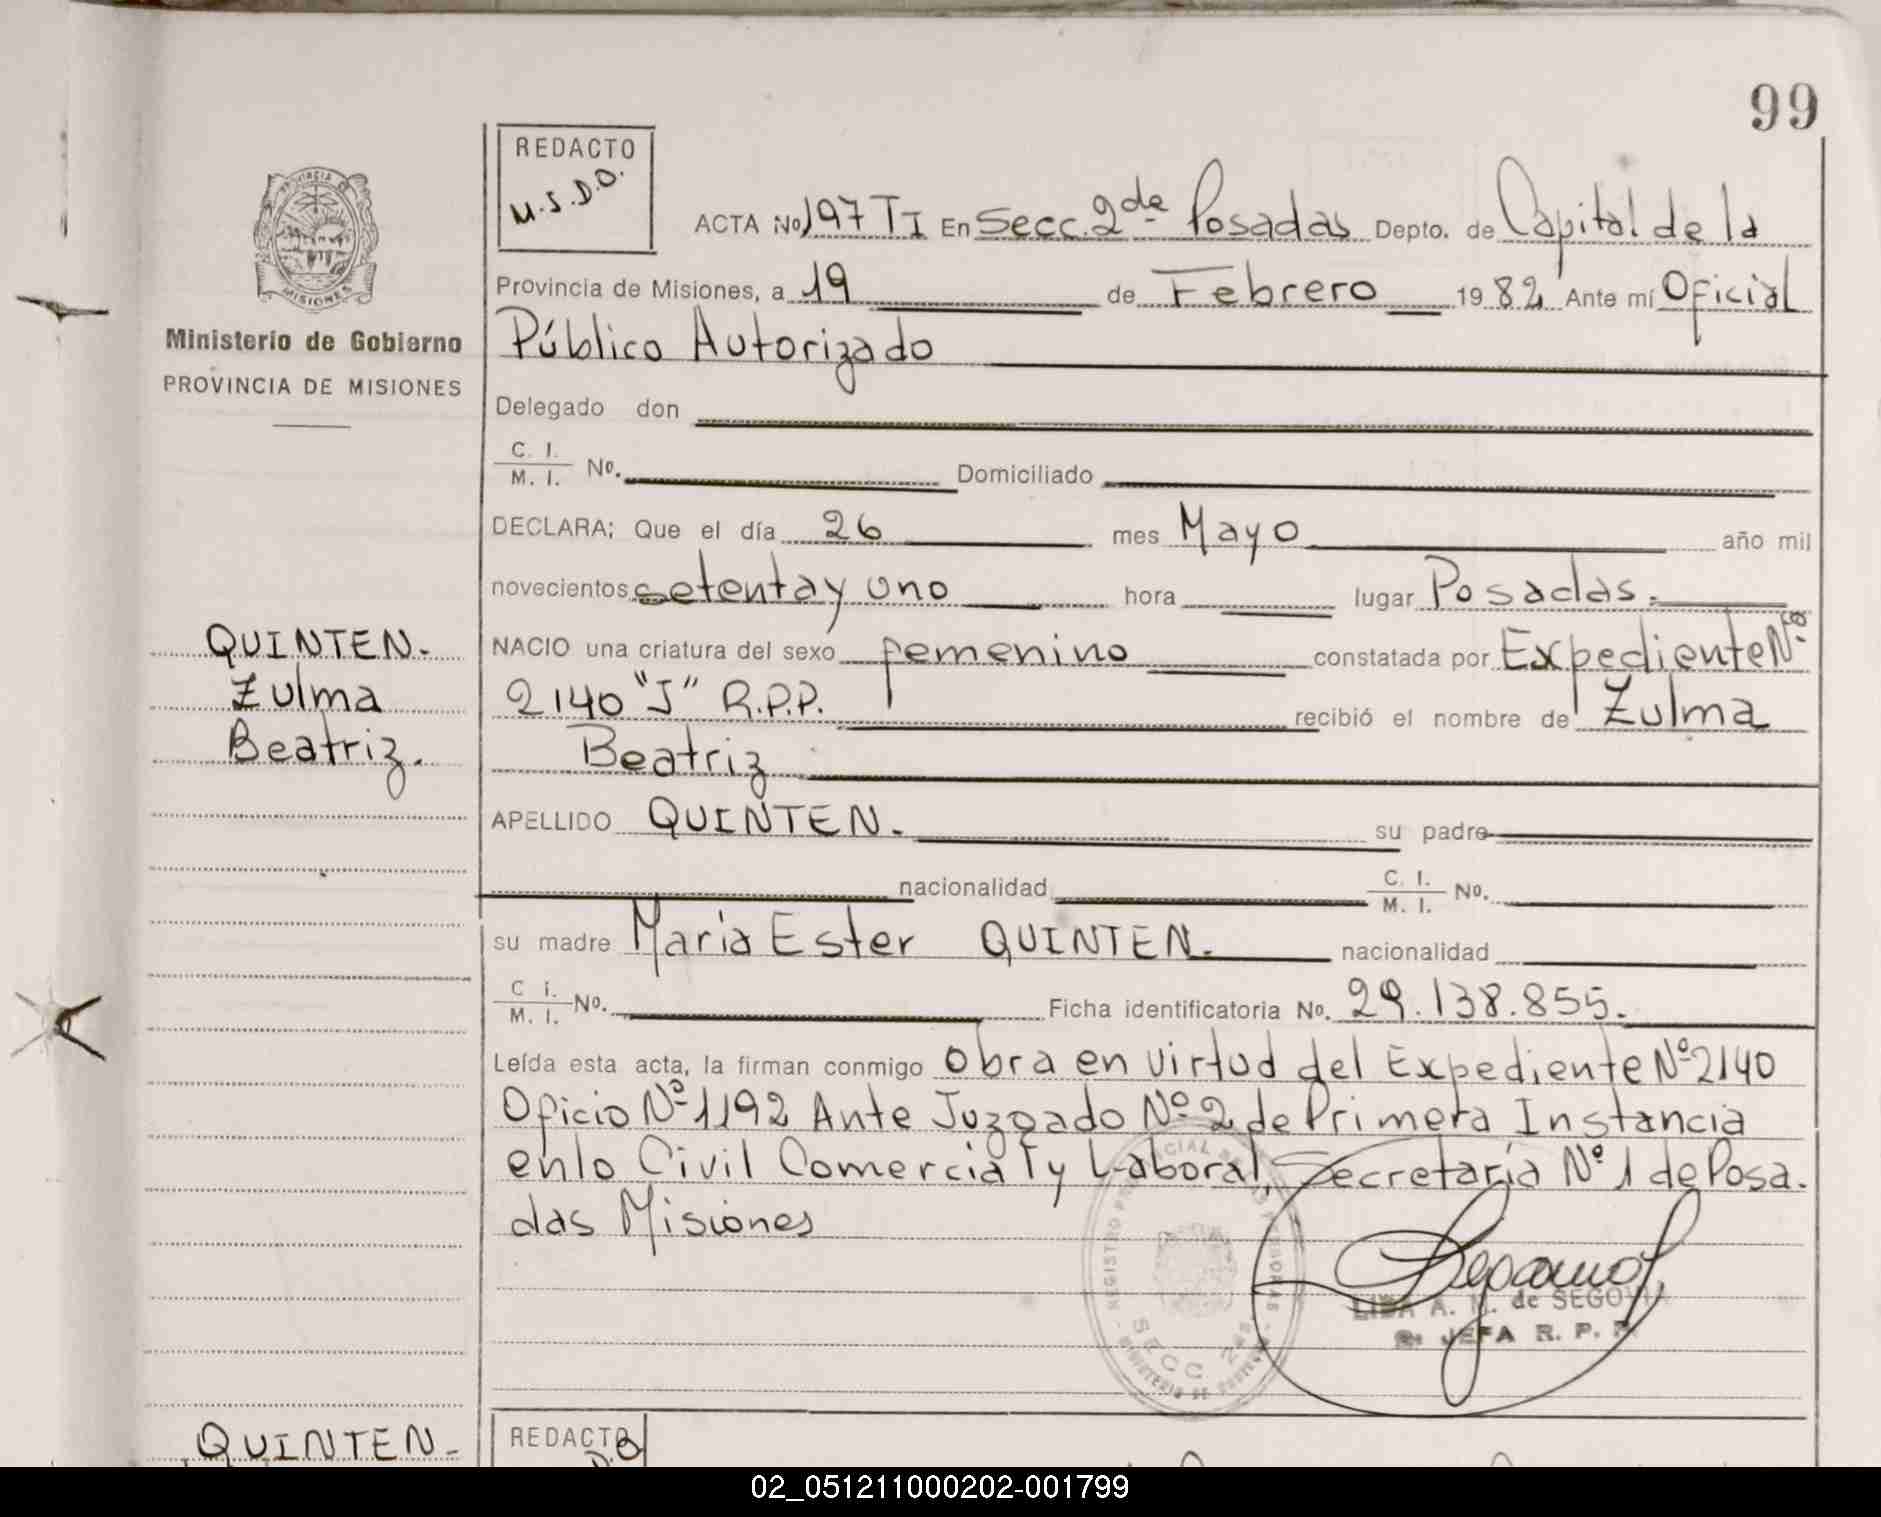 99
REDACTO
M.S.D.O.
PROVINCIA DE
MISIONES
Ministerio de Gobierno
PROVINCIA DE MISIONES
ACTA No 197 TI En Secc. 2da Posadas Depto. de Capital de la
Provincia de Misiones, a 19 de Febrero 1982 Ante mí Oficial
Público Autorizado
Delegado don
C. I. / M. I. Nº. Domiciliado
DECLARA; Que el día 26 mes Mayo año mil
novecientos setenta y uno hora lugar Posadas.
NACIO una criatura del sexo femenino constatada por Expediente Nº
2140 "J" R.P.P. recibió el nombre de Zulma
Beatriz
APELLIDO QUINTEN. su padre
nacionalidad C. I. / M. I. Nº.
su madre Maria Ester QUINTEN. nacionalidad
C i. / M. I. Nº. Ficha identificatoria No. 29.138.855.
Leída esta acta, la firman conmigo Obra en virtud del Expediente Nº 2140
Oficio Nº 1192 Ante Juzgado Nº 2 de Primera Instancia
en lo Civil Comercial y Laboral, Secretaría Nº 1 de Posa.
das Misiones
QUINTEN.
Zulma
Beatriz.
LIDA A. N. de SEGOVIA
JEFA R. P. P.
SECC
QUINTEN.
REDACTO
02_051211000202-001799